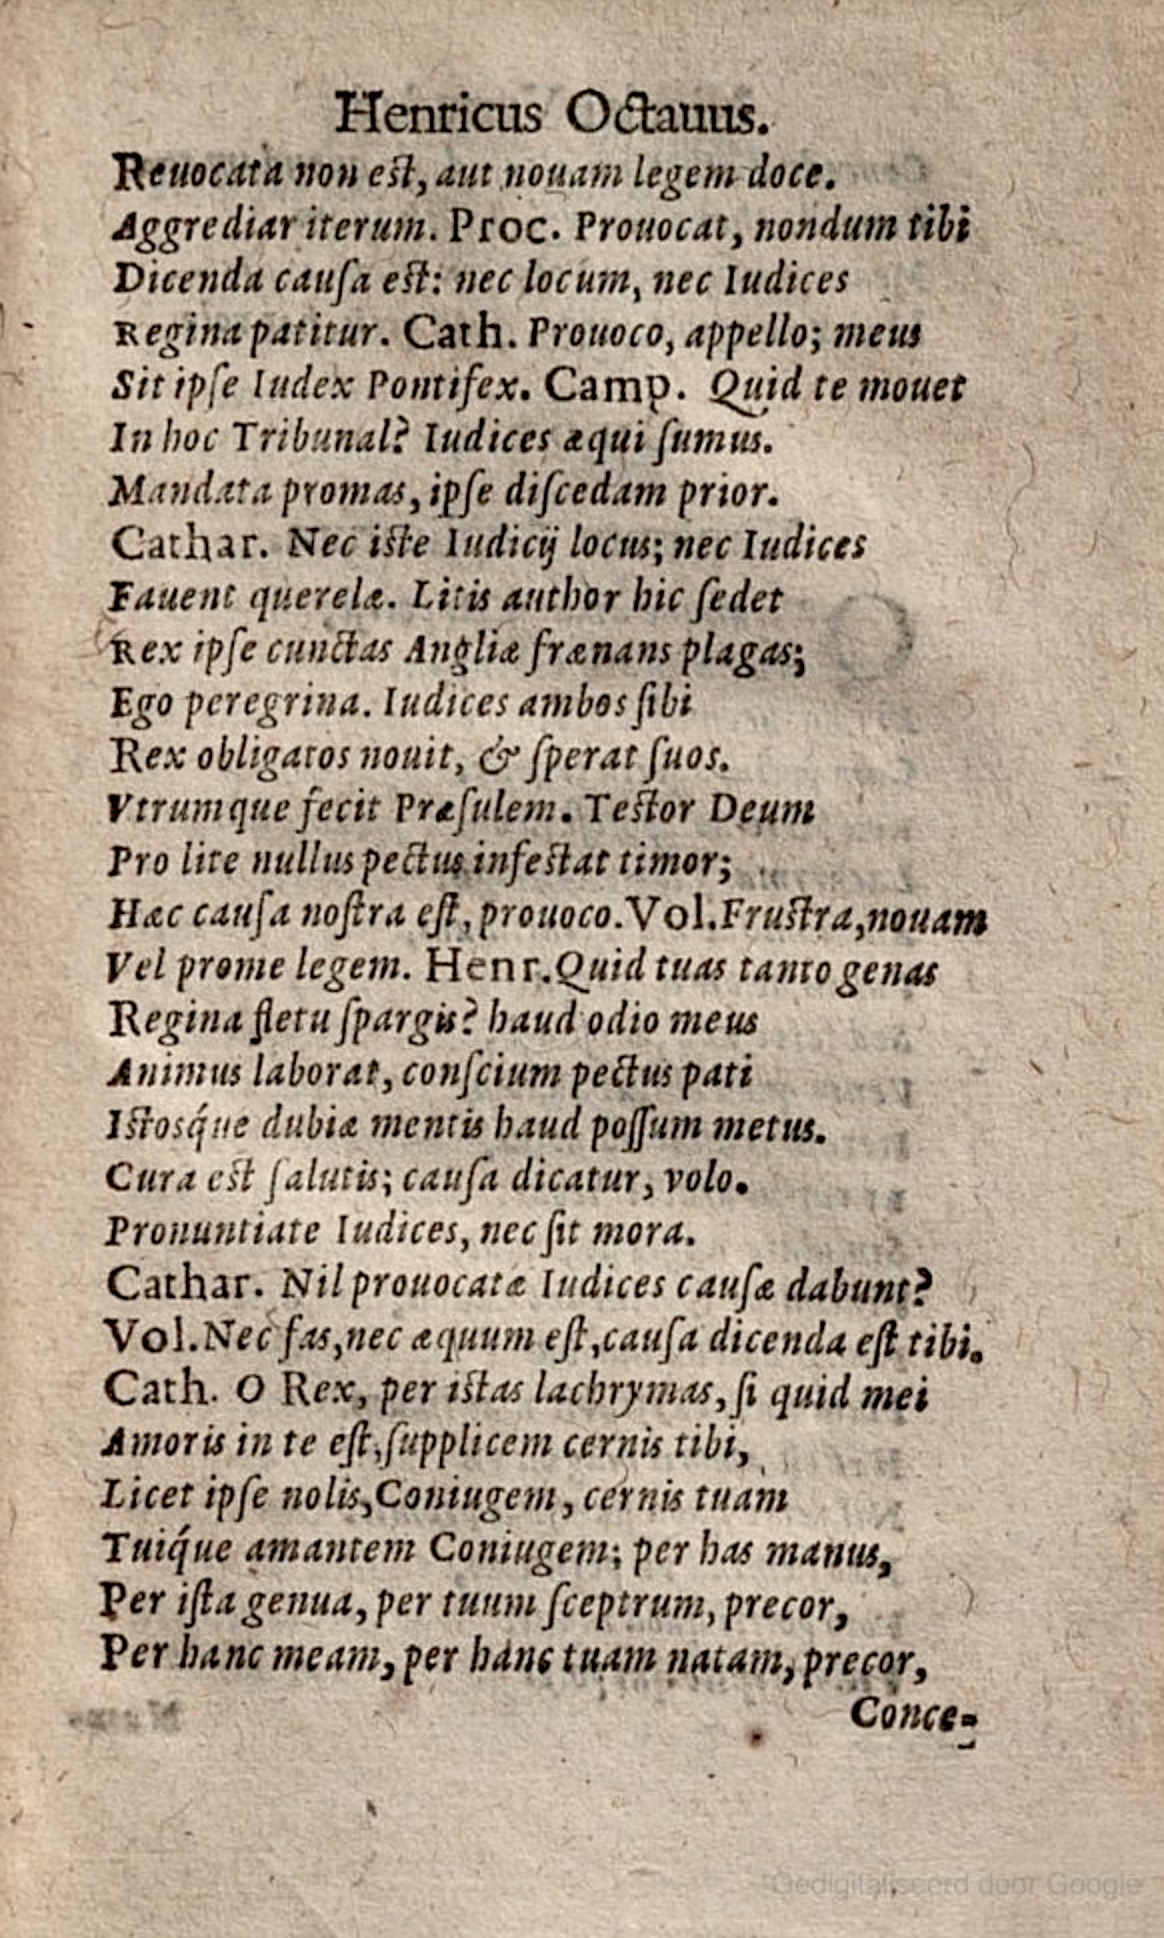 Henricus Octauus.
Reuocata non est, aut nouam legem doce.
Aggrediar iterum. Proc. Prouocat, nondum tibi
Dicenda cauſa est: nec locum, nec Iudices
Regina patitur. Cath. Prouoco, appello; meus
Sit ipſe Iudex Pontifex. Camp. Quid te mouet
In hoc Tribunal? Iudices æqui ſumus.
Mandata promas, ipſe diſcedam prior.
Cathar. Nec iste Iudicij locus; nec Iudices
Fauent querelæ. Litis author hic ſedet
Rex ipſe cunctas Angliæ frænans plagas;
Ego peregrina. Iudices ambos ſibi
Rex obligatos nouit, & ſperat ſuos.
Vtrumque fecit Præſulem. Testor Deum
Pro lite nullus pectus infestat timor;
Hæc cauſa noſtra eſt, prouoco. Vol. Frustra, nouam
Vel prome legem. Henr. Quid tuas tanto genas
Regina fletu ſpargis? haud odio meus
Animus laborat, conſcium pectus pati
Istosq́ue dubiæ mentis haud poſſum metus.
Cura est ſalutis; cauſa dicatur, volo.
Pronuntiate Iudices, nec ſit mora.
Cathar. Nil prouocatæ Iudices cauſæ dabunt?
Vol. Nec fas, nec æquum eſt, cauſa dicenda eſt tibi.
Cath. O Rex, per istas lachrymas, ſi quid mei
Amoris in te eſt, ſupplicem cernis tibi,
Licet ipſe nolis, Coniugem, cernis tuam
Tuiq́ue amantem Coniugem; per has manus,
Per iſta genua, per tuum ſceptrum, precor,
Per hanc meam, per hanc tuam natam, precor,
Conce-
Gedigitaliseerd door Google